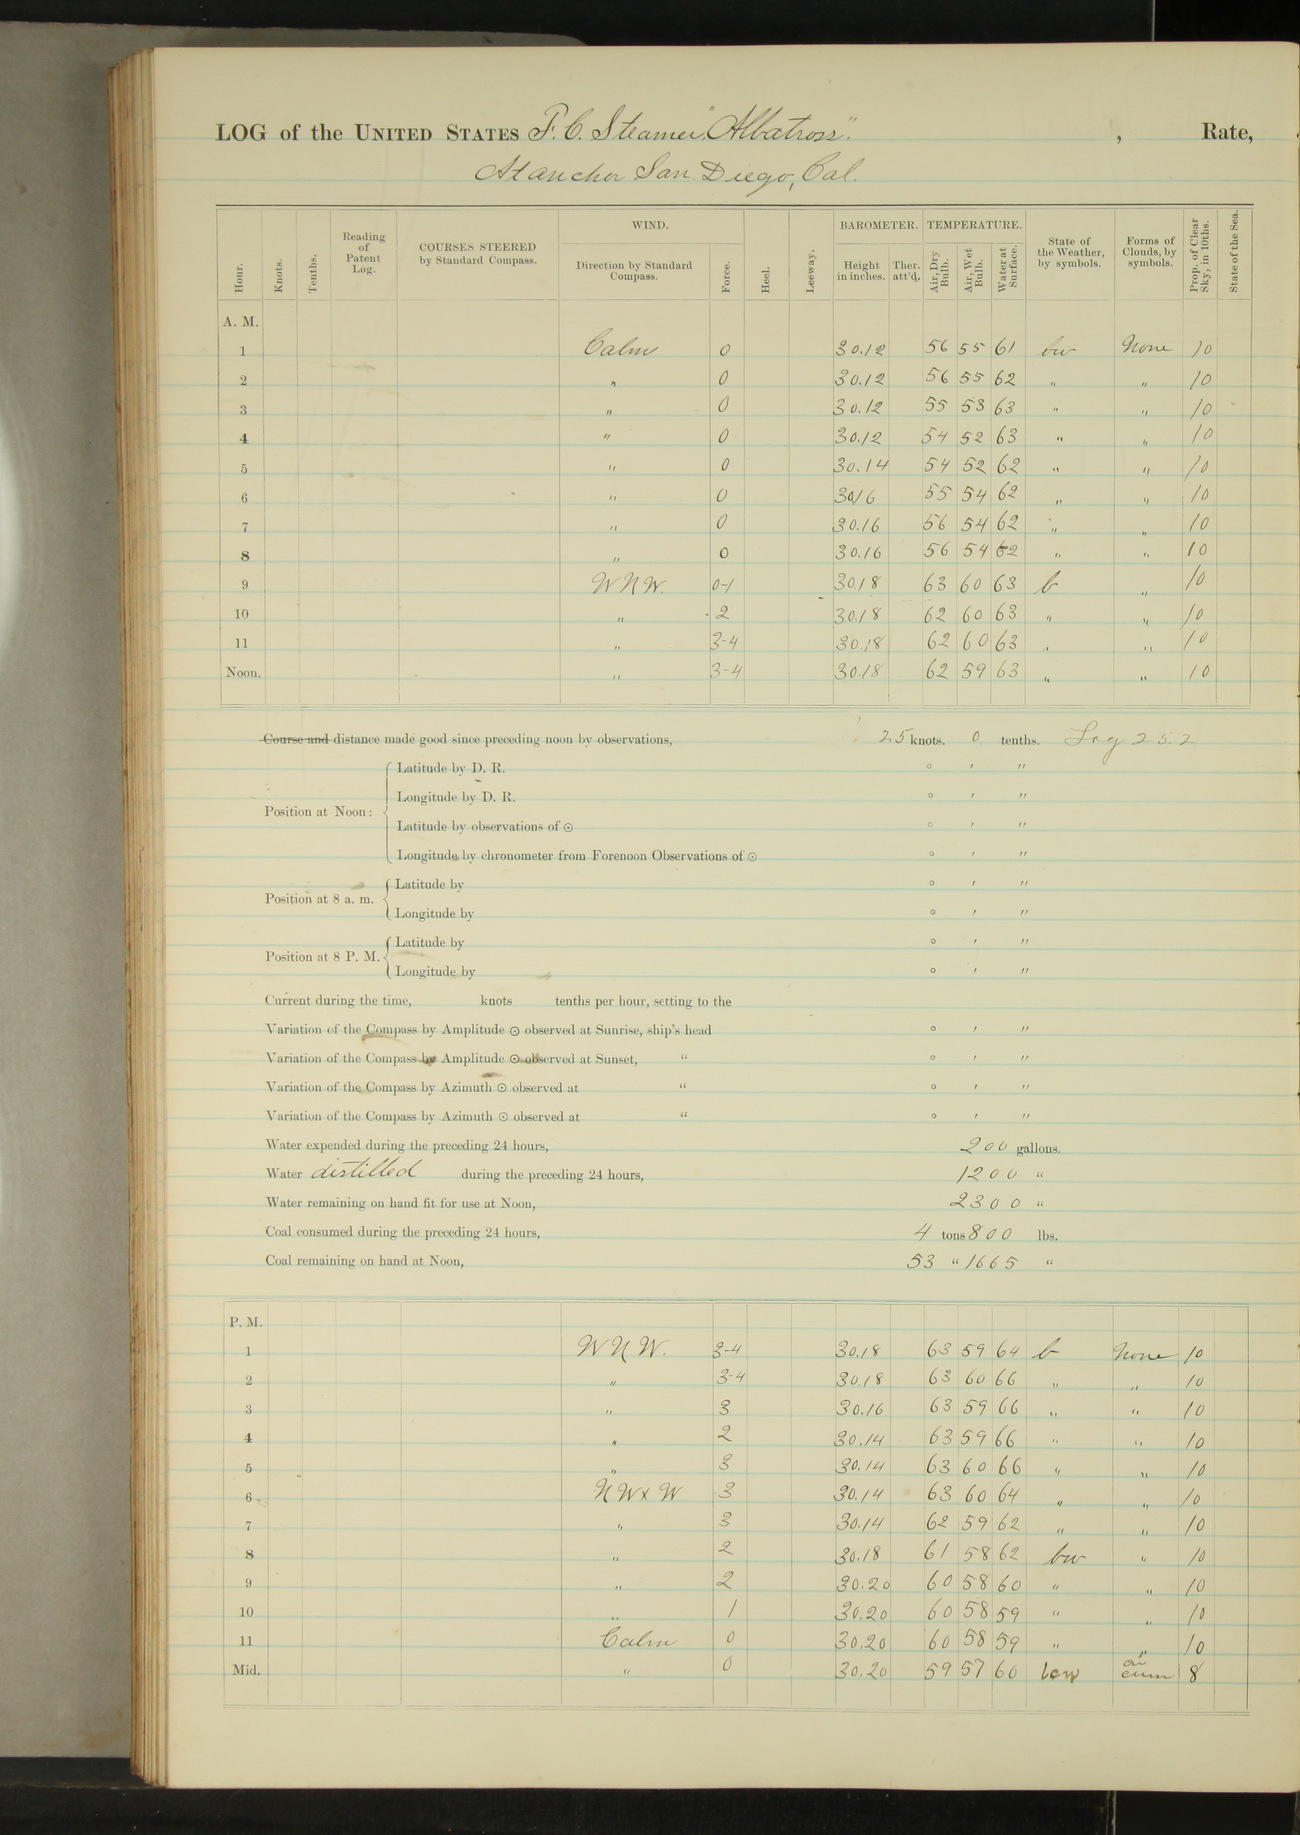 LOG of the UNITED STATES F. C. Steamer "Albatross". , Rate,
At anchor San Diego, Cal.
Hour. Knots. Tenths. Reading of Patent Log. COURSES STEERED by Standard Compass. WIND. Direction by Standard Compass. Force. Heel. Leeway. BAROMETER. Height in inches. Ther. att'd. TEMPERATURE. Air, Dry Bulb. Air, Wet Bulb. Water at Surface. State of the Weather, by symbols. Forms of Clouds, by symbols. Prop. of Clear Sky, in 10ths. State of the Sea.
A. M.
1 Calm 0 30.12 56 55 61 bw None 10
2 " 0 30.12 56 55 62 " " 10
3 " 0 30.12 55 53 63 " " 10
4 " 0 30.12 54 52 63 " " 10
5 " 0 30.14 54 52 62 " " 10
6 " 0 30.16 55 54 62 " " 10
7 " 0 30.16 56 54 62 " " 10
8 " 0 30.16 56 54 62 " " 10
9 WNW. 0-1 30.18 63 60 63 b " 10
10 " 2 30.18 62 60 63 " " 10
11 " 3-4 30.18 62 60 63 " " 10
Noon. " 3-4 30.18 62 59 63 " " 10
Course and distance made good since preceding noon by observations, 25 knots. 0 tenths. Log 25.2
Position at Noon:
Latitude by D. R. ° ′ ″
Longitude by D. R. ° ′ ″
Latitude by observations of ☉ ° ′ ″
Longitude by chronometer from Forenoon Observations of ☉ ° ′ ″
Position at 8 a. m.
Latitude by ° ′ ″
Longitude by ° ′ ″
Position at 8 P. M.
Latitude by ° ′ ″
Longitude by ° ′ ″
Current during the time, knots tenths per hour, setting to the
Variation of the Compass by Amplitude ☉ observed at Sunrise, ship's head ° ′ ″
Variation of the Compass by Amplitude ☉ observed at Sunset, " ° ′ ″
Variation of the Compass by Azimuth ☉ observed at " ° ′ ″
Variation of the Compass by Azimuth ☉ observed at " ° ′ ″
Water expended during the preceding 24 hours, 200 gallons.
Water distilled during the preceding 24 hours, 1200 "
Water remaining on hand fit for use at Noon, 2300 "
Coal consumed during the preceding 24 hours, 4 tons 800 lbs.
Coal remaining on hand at Noon, 53 " 1665 "
P. M.
1 WNW. 3-4 30.18 63 59 64 b None 10
2 " 3-4 30.18 63 60 66 " " 10
3 " 3 30.16 63 59 66 " " 10
4 " 2 30.14 63 59 66 " " 10
5 " 3 30.14 63 60 66 " " 10
6 NWxW 3 30.14 63 60 64 " " 10
7 " 3 30.14 62 59 62 " " 10
8 " 2 30.18 61 58 62 bw " 10
9 " 2 30.20 60 58 60 " " 10
10 " 1 30.20 60 58 59 " " 10
11 Calm 0 30.20 60 58 59 " " 10
Mid. " 0 30.20 59 57 60 bcw cum 8